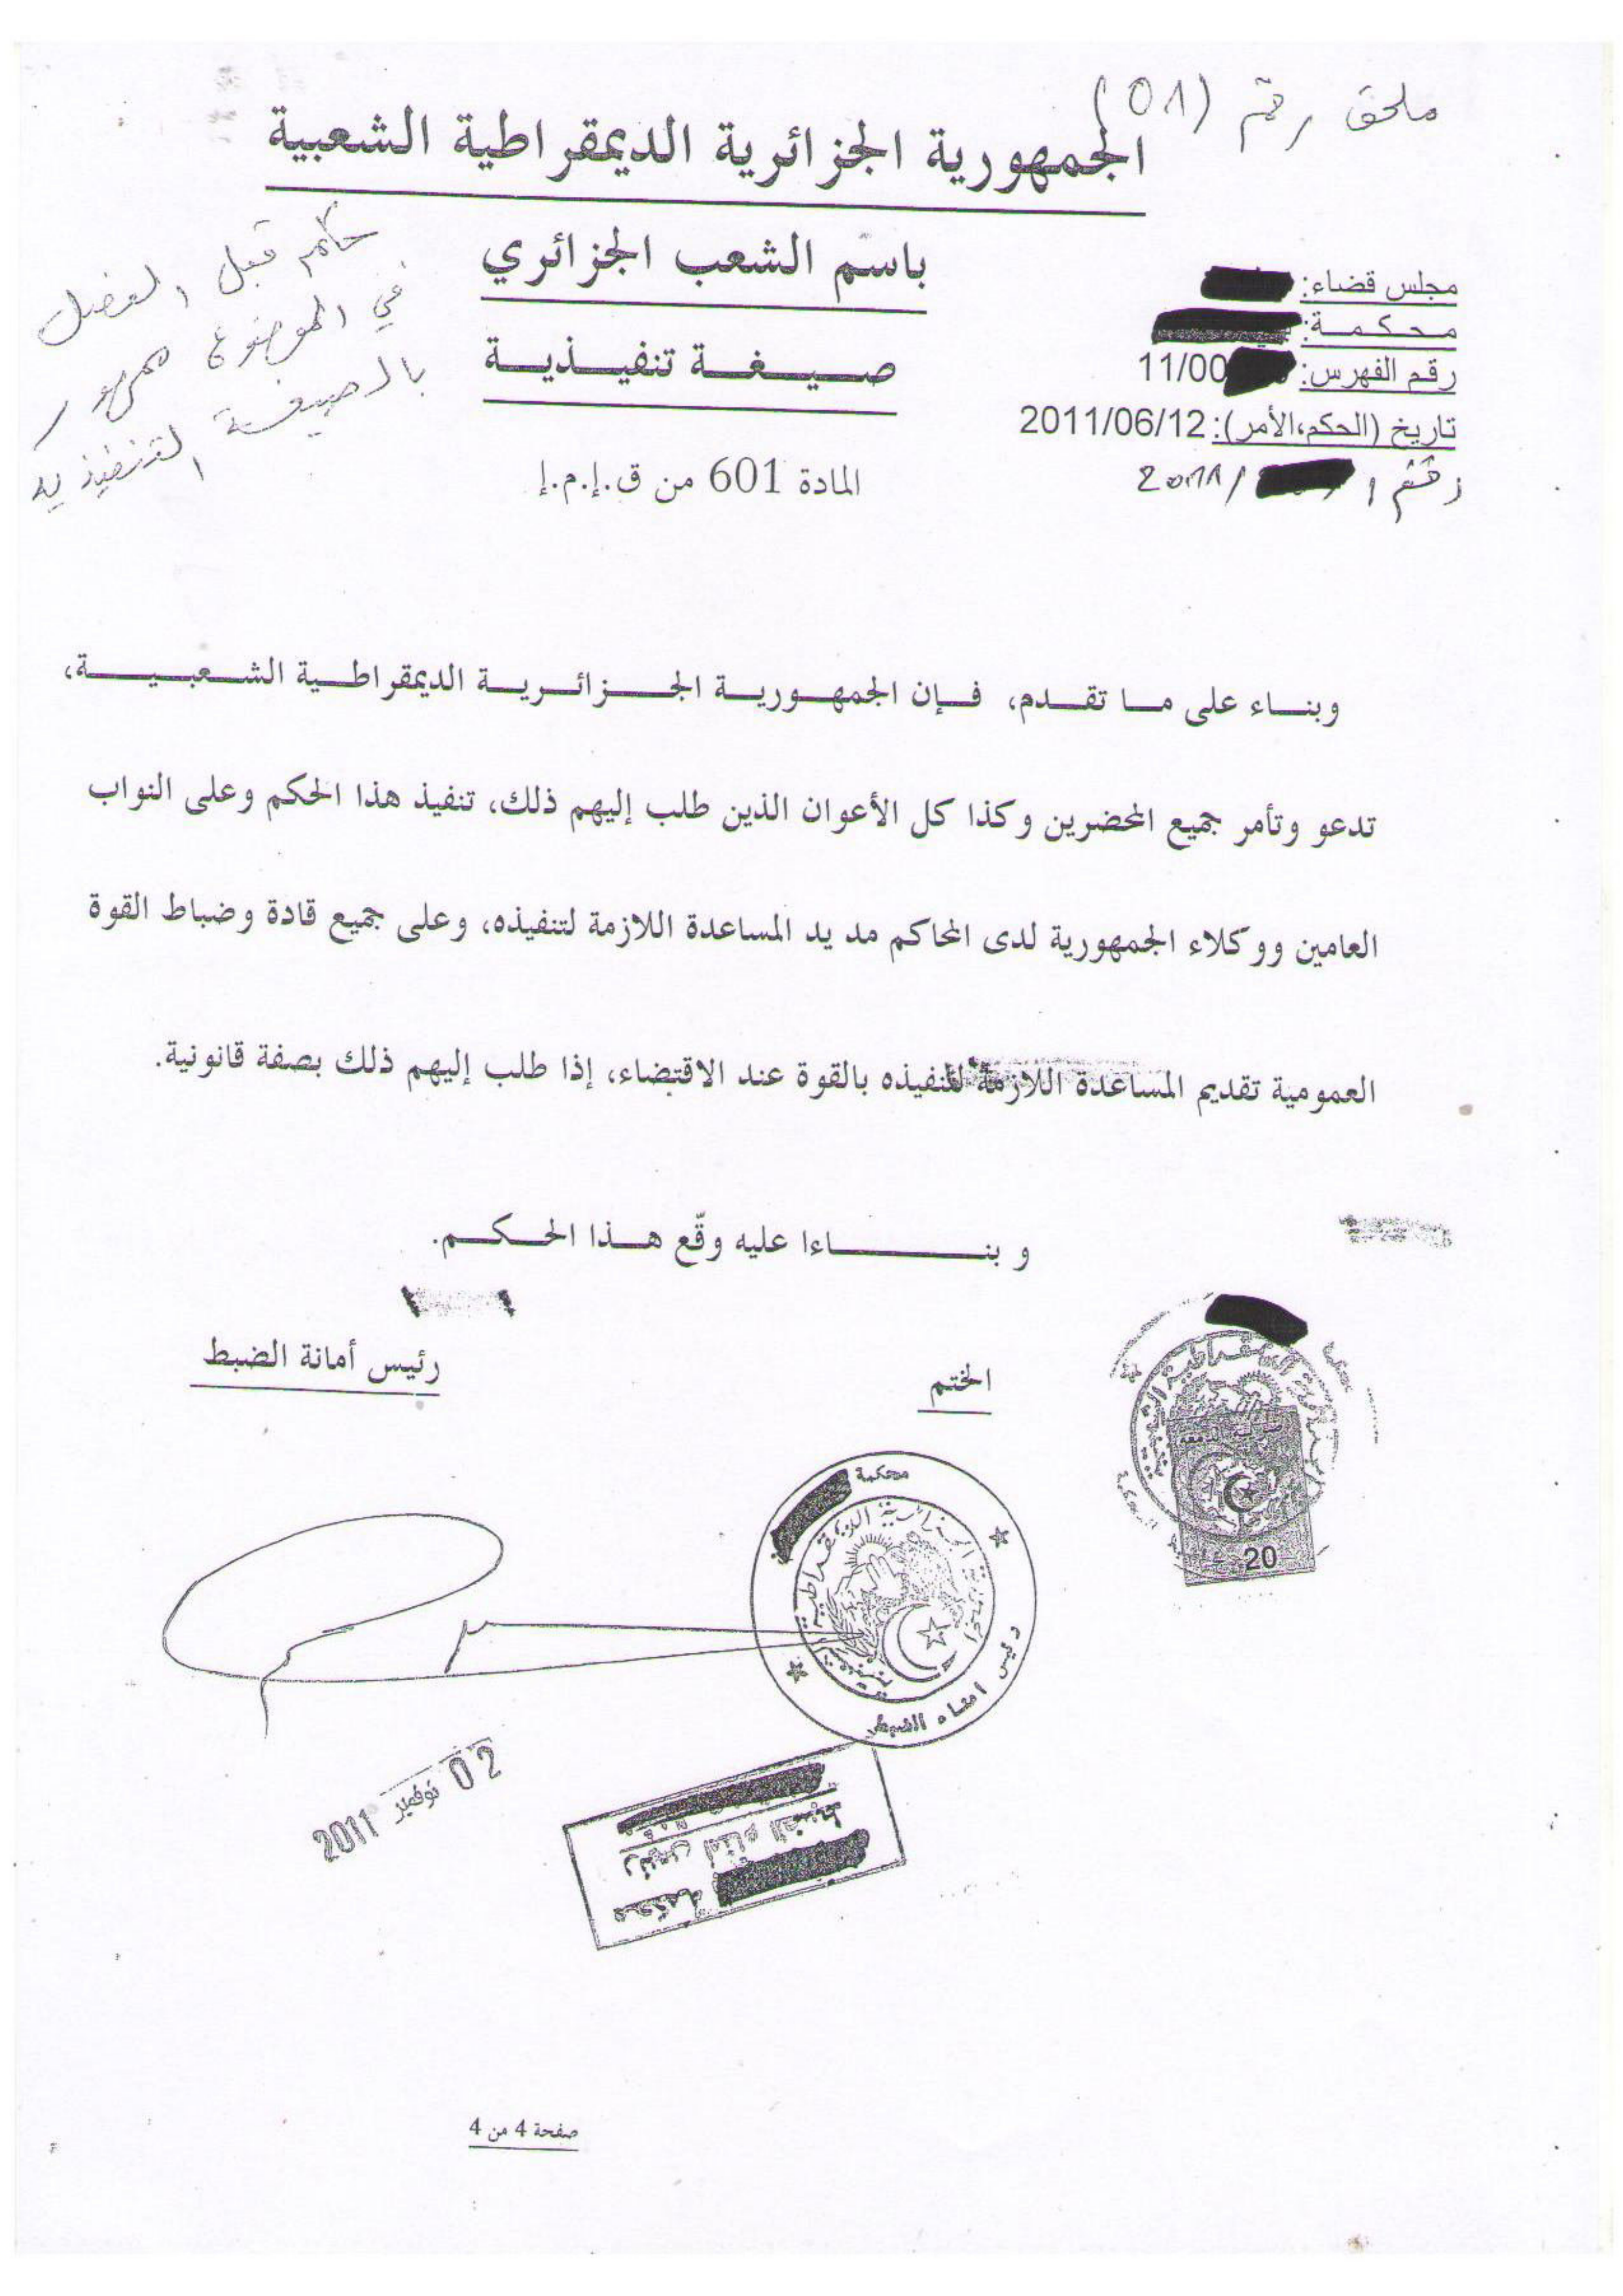 ملحق رقم (01)
الجمهورية الجزائرية الديمقراطية الشعبية
باسم الشعب الجزائري
صيغة تنفيذية
المادة 601 من ق.إ.م.إ
مجلس قضاء:
محكمة:
رقم الفهرس: 11/00
تاريخ (الحكم،الأمر): 2011/06/12
رقم /2011
حكم قبل الفصل
في الموضوع ممهور
بالصيغة التنفيذية
وبناء على ما تقدم، فإن الجمهورية الجزائرية الديمقراطية الشعبية،
تدعو وتأمر جميع المحضرين وكذا كل الأعوان الذين طلب إليهم ذلك، تنفيذ هذا الحكم وعلى النواب
العامين ووكلاء الجمهورية لدى المحاكم مد يد المساعدة اللازمة لتنفيذه، وعلى جميع قادة وضباط القوة
العمومية تقديم المساعدة اللازمة لتنفيذه بالقوة عند الاقتضاء، إذا طلب إليهم ذلك بصفة قانونية.
و بناءا عليه وقّع هذا الحكم.
الختم
رئيس أمانة الضبط
محكمة
رئيس امناء الضبط
20
02 نوفمبر 2011
محكمة
رئيس أمناء الضبط
صفحة 4 من 4